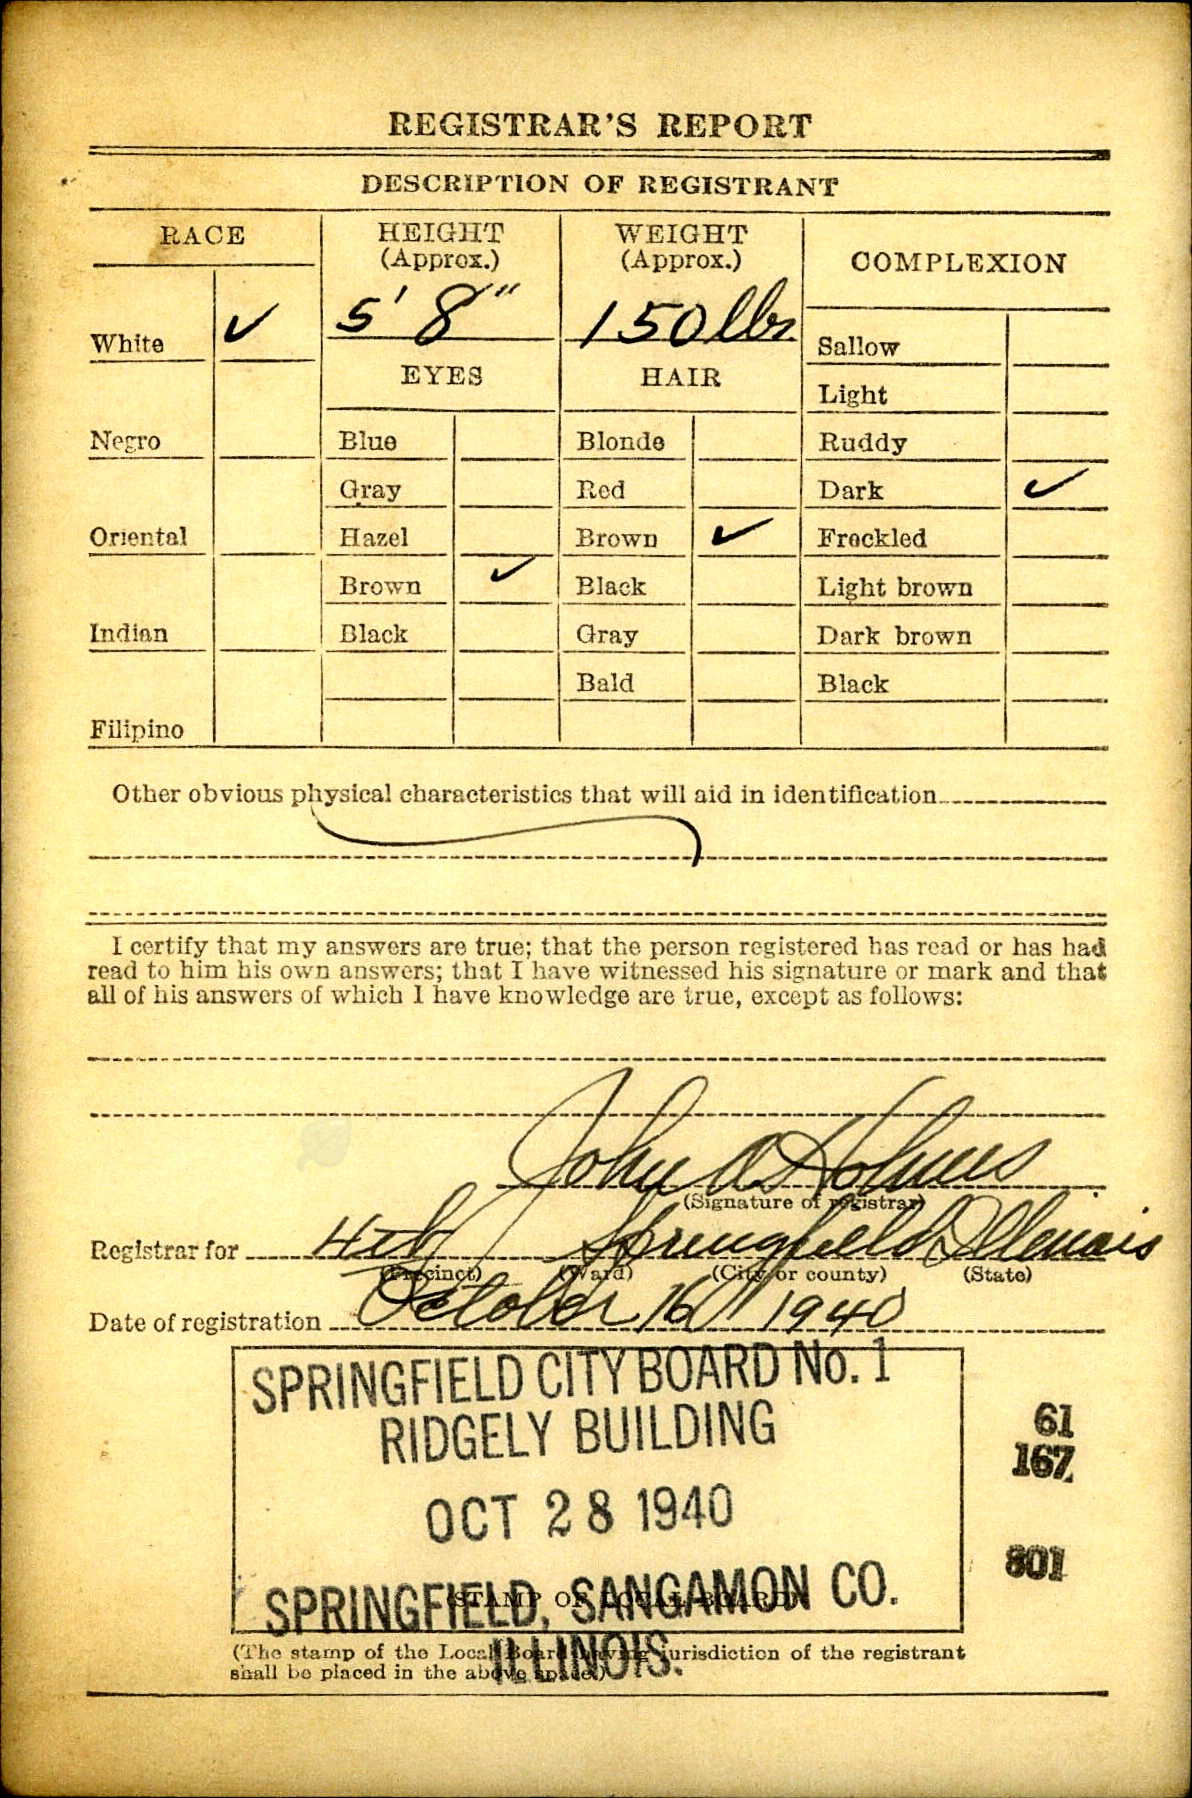 REGISTRAR'S REPORT
DESCRIPTION OF REGISTRANT
RACE
HEIGHT
(Approx.)
WEIGHT
(Approx.)
COMPLEXION
White ✓
5' 8"
150 lbs.
Sallow
EYES
HAIR
Light
Negro
Blue
Blonde
Ruddy
Gray
Red
Dark ✓
Oriental
Hazel
Brown ✓
Freckled
Brown ✓
Black
Light brown
Indian
Black
Gray
Dark brown
Bald
Black
Filipino
Other obvious physical characteristics that will aid in identification
I certify that my answers are true; that the person registered has read or has had
read to him his own answers; that I have witnessed his signature or mark and that
all of his answers of which I have knowledge are true, except as follows:
John A Holmes
(Signature of registrar)
Registrar for 4th Springfield Illinois
(Precinct) (Ward) (City or county) (State)
Date of registration October 16 1940
SPRINGFIELD CITY BOARD No. 1
RIDGELY BUILDING
OCT 28 1940
SPRINGFIELD, SANGAMON CO.
ILLINOIS.
61
167
801
(STAMP OF LOCAL BOARD)
(The stamp of the Local Board having jurisdiction of the registrant
shall be placed in the above space.)